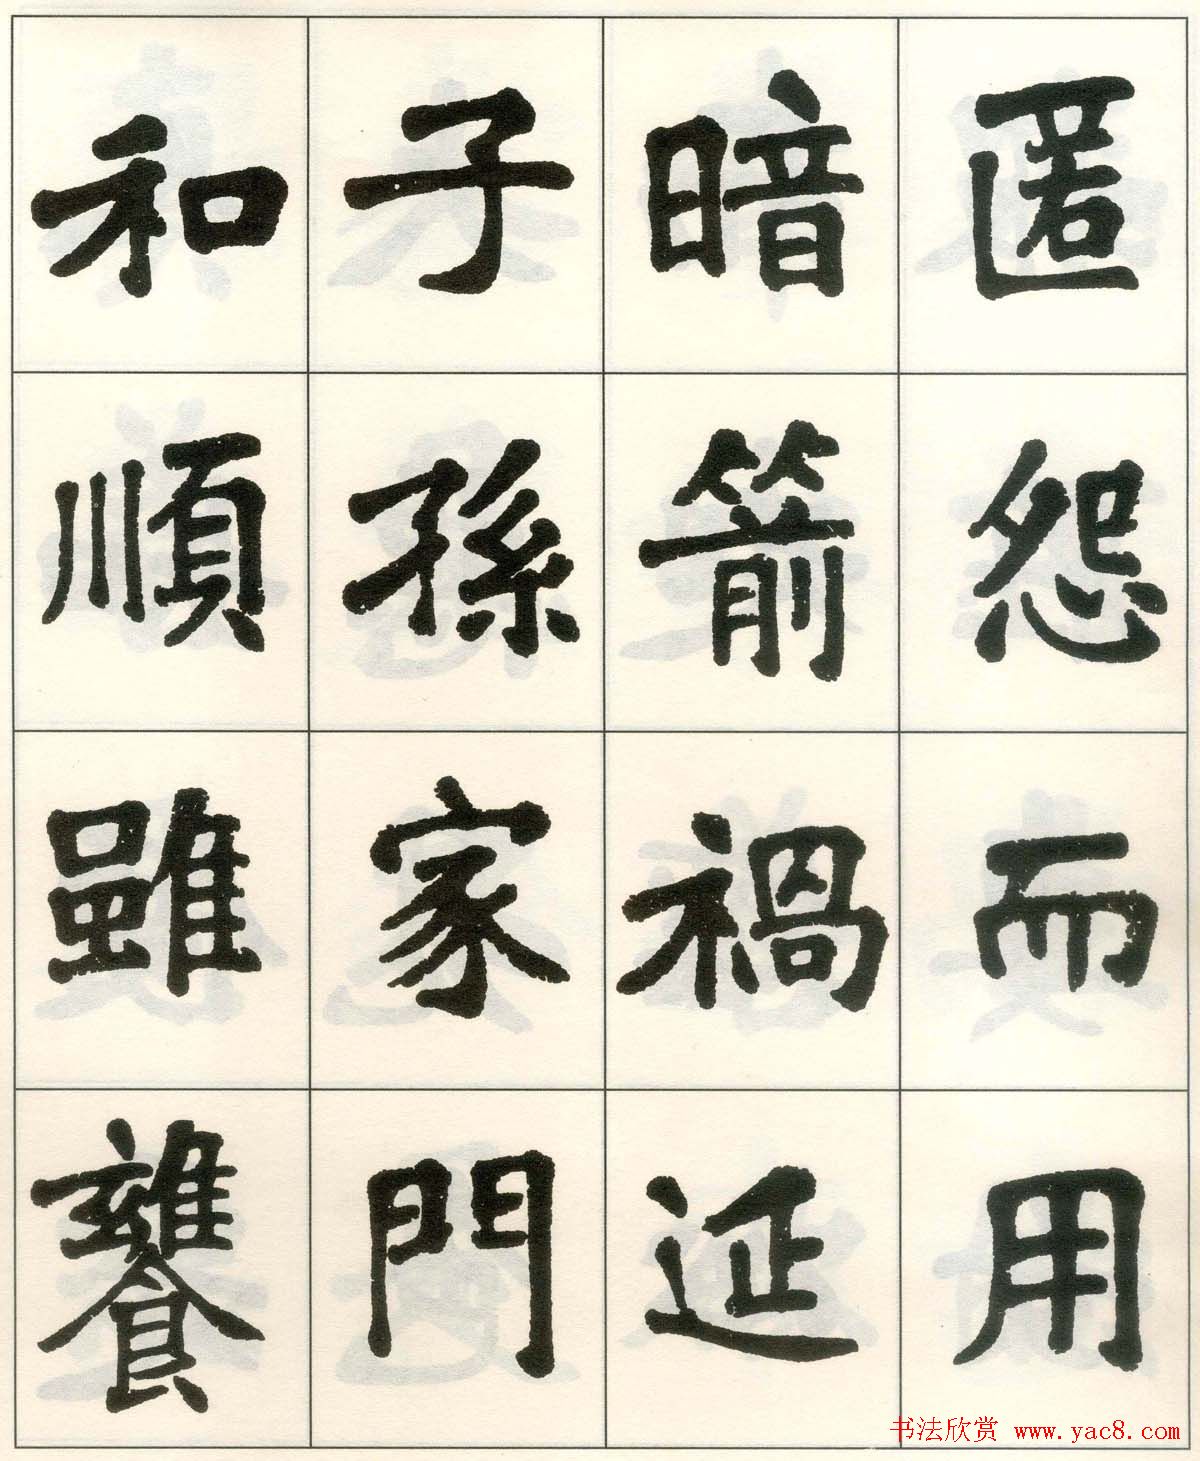 匿怨而用
暗箭禍延
子孫家門
和順雖饔
书法欣赏 www.yac8.com